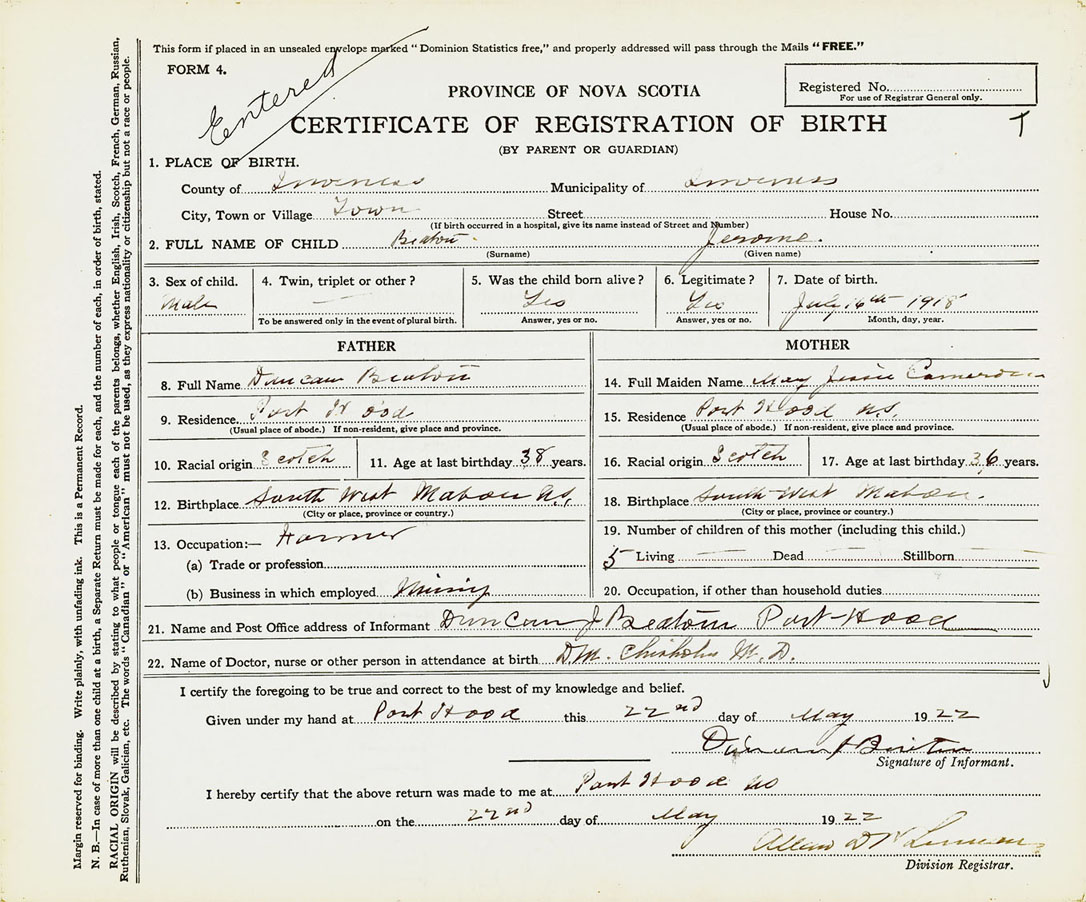 This form if placed in an unsealed envelope marked "Dominion Statistics free," and properly addressed will pass through the Mails "FREE."
FORM 4.
Entered
PROVINCE OF NOVA SCOTIA
Registered No.
For use of Registrar General only.
CERTIFICATE OF REGISTRATION OF BIRTH
(BY PARENT OR GUARDIAN)
1. PLACE OF BIRTH.
County of Inverness Municipality of Inverness
City, Town or Village Town Street House No.
(If birth occurred in a hospital, give its name instead of Street and Number)
2. FULL NAME OF CHILD Beaton Jerome.
(Surname) (Given name)
3. Sex of child. 4. Twin, triplet or other? 5. Was the child born alive? 6. Legitimate? 7. Date of birth.
Male Yes Yes July 16th 1918
To be answered only in the event of plural birth. Answer, yes or no. Answer, yes or no. Month, day, year.
FATHER
8. Full Name Duncan Beaton
9. Residence. Port Hood
(Usual place of abode.) If non-resident, give place and province.
10. Racial origin Scotch 11. Age at last birthday 38 years.
12. Birthplace South West Mabou N.S.
(City or place, province or country.)
13. Occupation:— Farmer
(a) Trade or profession
(b) Business in which employed Mining
MOTHER
14. Full Maiden Name May Jessie Cameron
15. Residence Port Hood N.S.
(Usual place of abode.) If non-resident, give place and province.
16. Racial origin Scotch 17. Age at last birthday 36 years.
18. Birthplace South West Mabou.
(City or place, province or country.)
19. Number of children of this mother (including this child.)
5 Living Dead Stillborn
20. Occupation, if other than household duties
21. Name and Post Office address of Informant Duncan J Beaton Port Hood
22. Name of Doctor, nurse or other person in attendance at birth D.M. Chisholm M.D.
I certify the foregoing to be true and correct to the best of my knowledge and belief.
Given under my hand at Port Hood this 22nd day of May 1922
Duncan J Beaton
Signature of Informant.
I hereby certify that the above return was made to me at Port Hood NS
on the 22nd day of May 1922
Allan D
Division Registrar.
Margin reserved for binding. Write plainly, with unfading ink. This is a Permanent Record.
N. B.—In case of more than one child at a birth, a Separate Return must be made for each, and the number of each, in order of birth, stated.
RACIAL ORIGIN will be described by stating to what people or tongue each of the parents belongs, whether English, Irish, Scotch, French, German, Russian,
Ruthenian, Slovak, Galician, etc. The words "Canadian" or "American" must not be used, as they express nationality or citizenship but not a race or people.